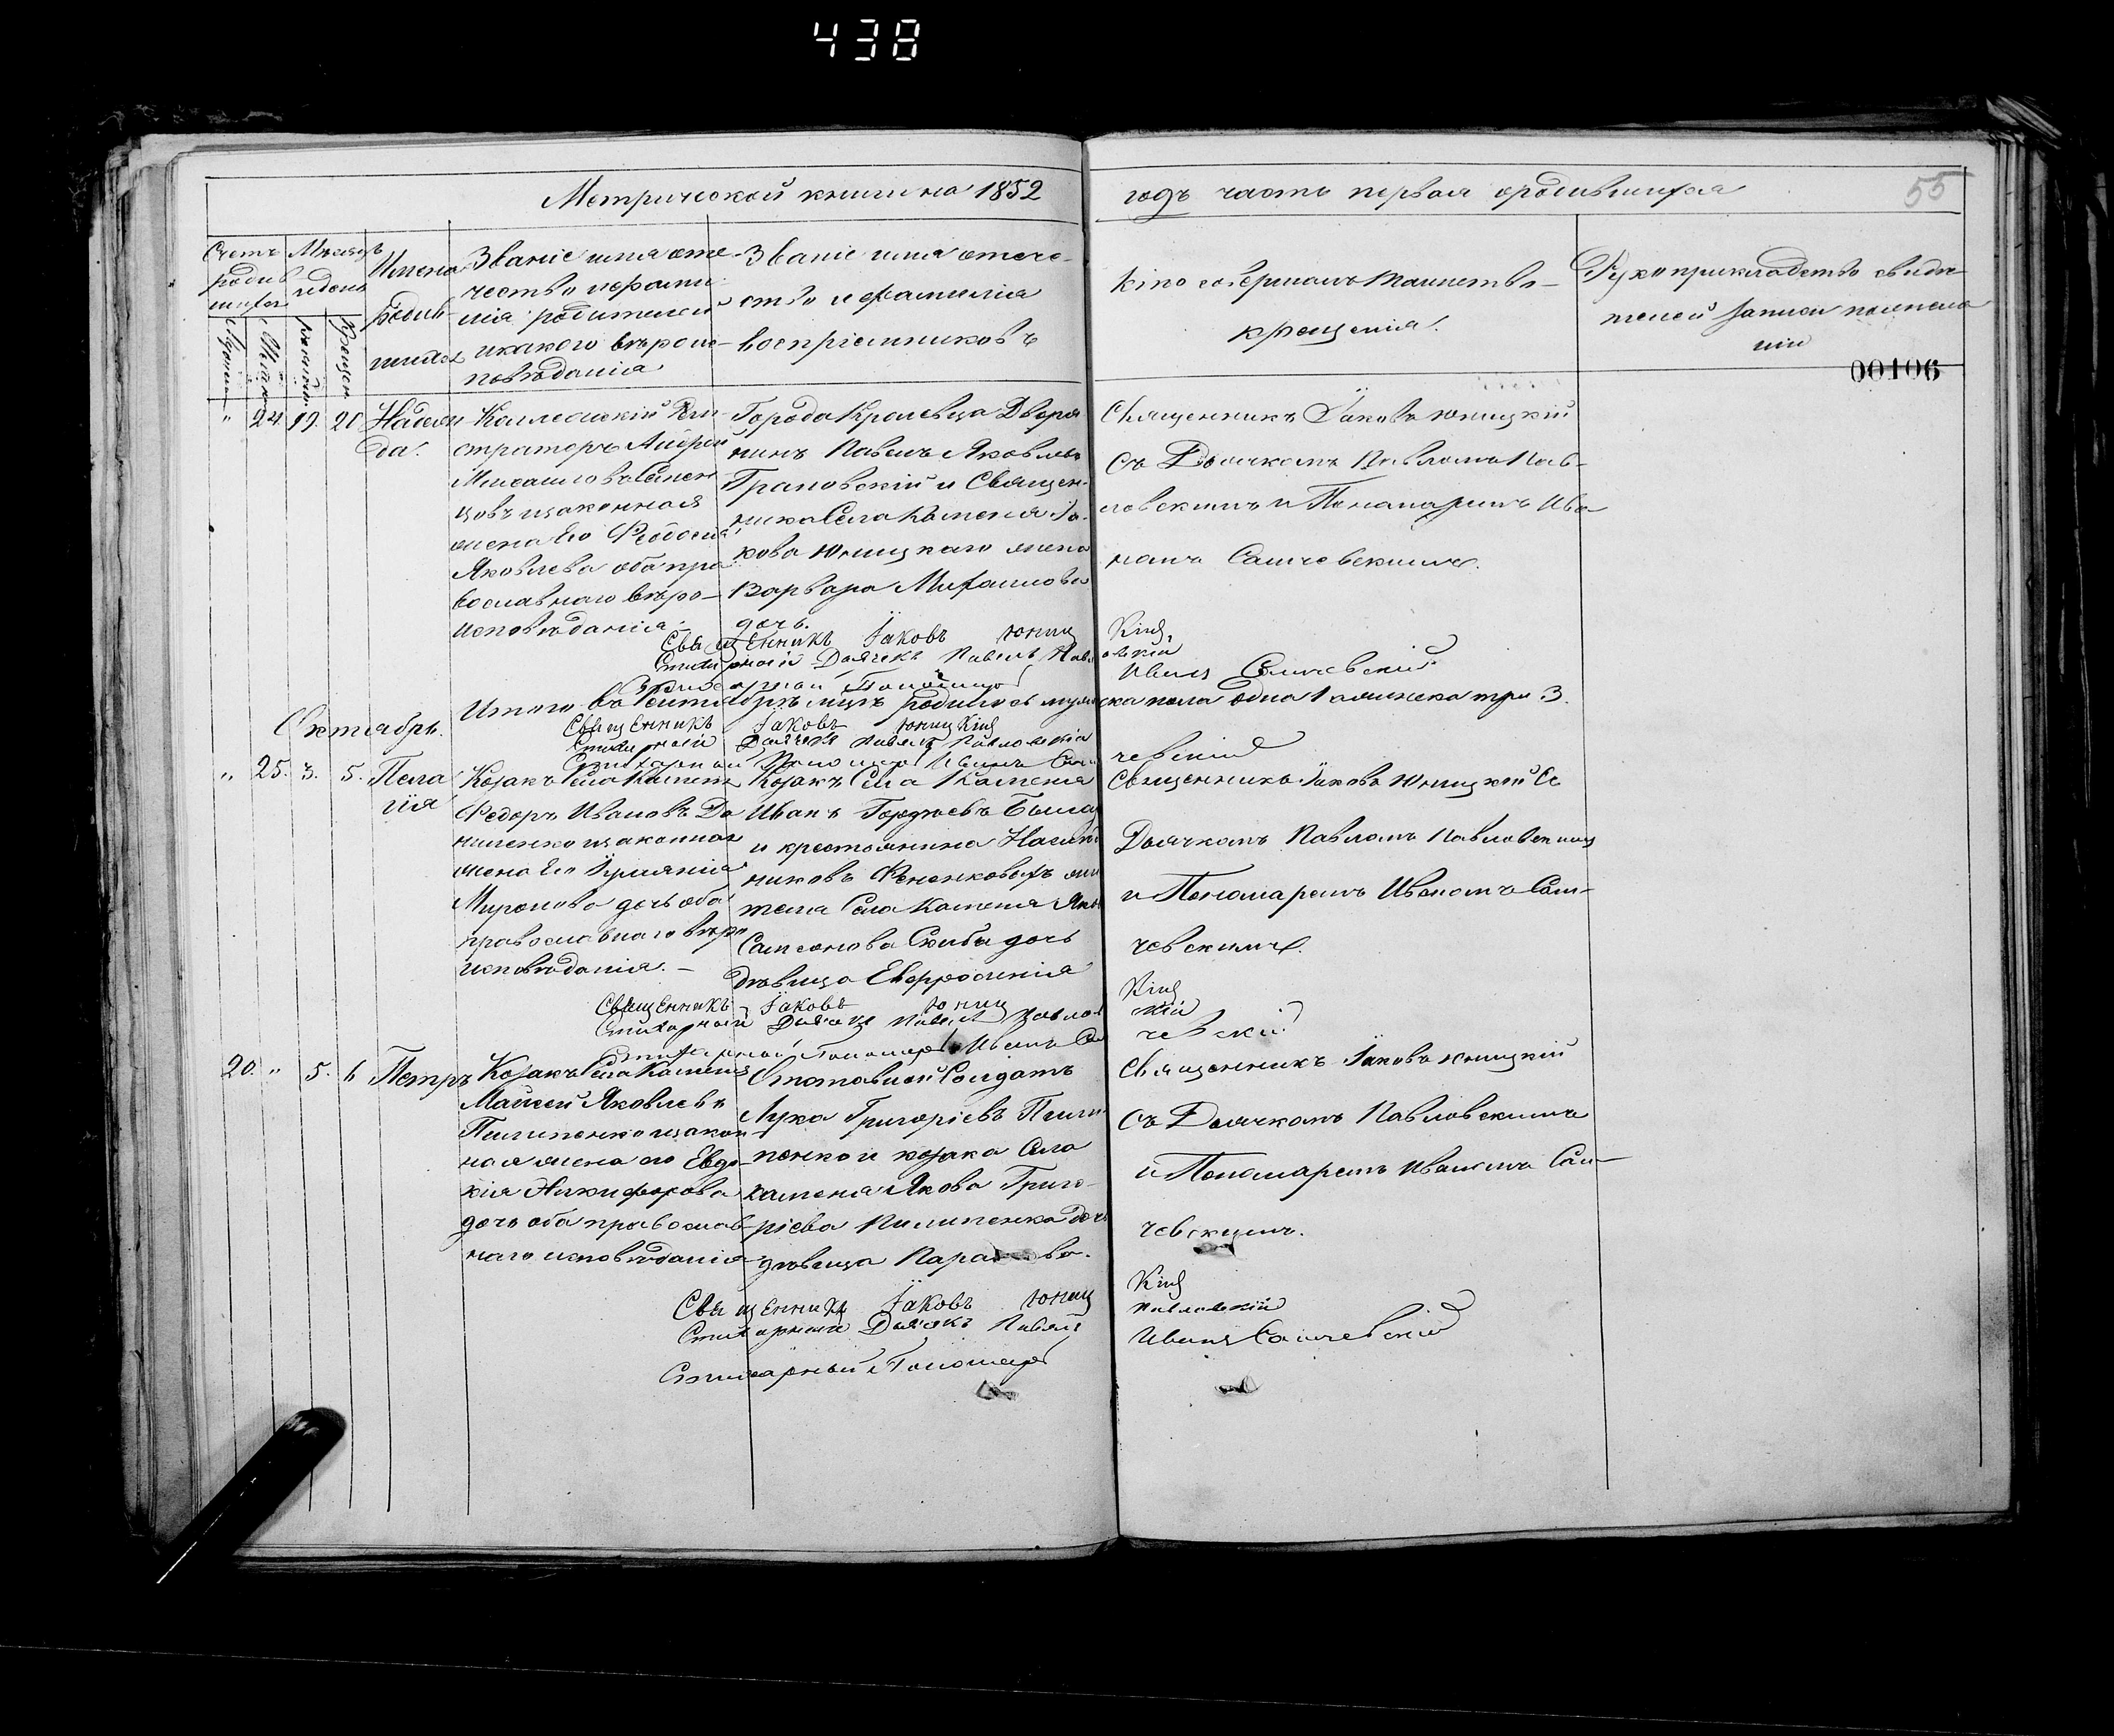 438
Метрической книги на 1852 годъ часть первая о родившихся
55
Счетъ родив шихся
Мѣсяцъ и день
Имена родив шихся
Званіе имя оте
чество и фами
лія родителей
и какого вѣрои
повѣданія
Званіе имя отече
ство и фамилія
воспріемниковъ
Кто совершалъ таинство
крещенія.
Рукоприкладство свидѣ
телей записи по желa
нію
00106
" 24. 19. 20 Надеж
да.
Коллежскій Реги
страторъ Андрей
и законная
жена его Феодосія
Яковлева оба пра
вославнаго вѣро
исповѣданія.
Города Кролевца Дворя
нинъ Павелъ Яковлевъ
Грановскій и Священ
ника Села Каменя Іа
кова Юницкаго жена
Варвара Михайлова
дочь.
Священникъ Іаковъ Юницкій
съ Дьячкомъ Павломъ Пав
ловскимъ и Пономаремъ Ива
номъ Самчевскимъ.
Священникъ Іаковъ Юницкій
Стихарный Дьячекъ Павелъ Павловскій
Стихарный Пономарь Иванъ Самчевскій
Итого въ Сентябрѣ мцѣ родилось мужеска пола одна 1 а женска три 3.
Священникъ Іаковъ Юницкій
Стихарный Дьячекъ Павелъ Павловскій
Стихарный Пономарь Иванъ Самчевскій
Октябрь.
" 25. 3. 5. Пела
гія
Козакъ Села Каменя
Федоръ Ивановъ Да
ниленко и законная
жена его
Миронова дочь оба
православнаго вѣро
исповѣданія.
Козакъ Села Каменя
Иванъ
и крестьянина Наслѣд
никовъ жи
теля Села Каменя Якова
Самсонова Скибы дочь
дѣвица Евфросинія
Священникъ Іаковъ Юницкій съ
Дьячкомъ Павломъ Павловскимъ
и Пономаремъ Иваномъ Сам
чевскимъ.
Священникъ Іаковъ Юницкій
Стихарный Дьячекъ Павелъ Павловскій
Стихарный Пономарь Иванъ Самчевскій
20. " 5. 6 Петръ
Козакъ Села Каменя
Моисей Яковлевъ
Пилипенко и закон
ная жена его Евдо
кія Никифорова
дочь оба православ
наго исповѣданія
Отставной Солдатъ
Лука Григоріевъ Пили
пенко и козака Села
Каменя Якова Григо
ріева Пилипенка дочь
дѣвица
Священникъ Іаковъ Юницкій
съ Дьячкомъ Павловскимъ
и Пономаремъ Иваномъ Сам
чевскимъ.
Священникъ Іаковъ Юницкій
Стихарный Дьячекъ Павелъ Павловскій
Стихарный Пономарь Иванъ Самчевскій